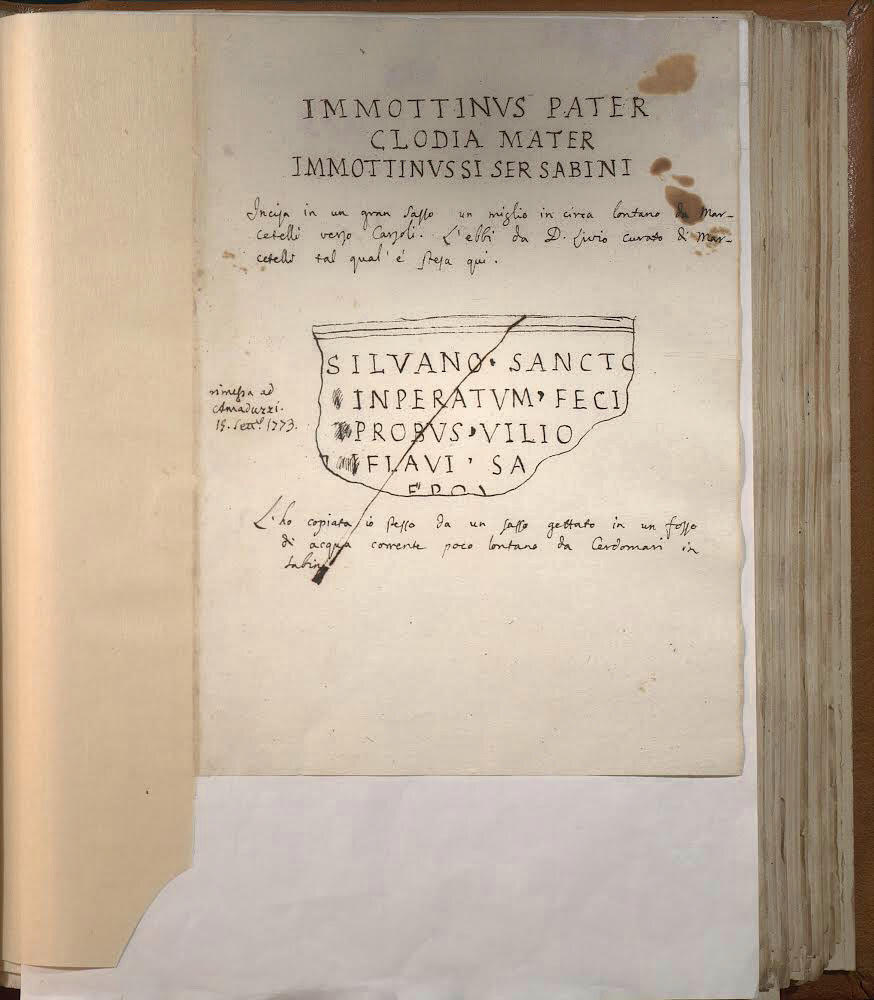 IMMOTTINVS PATER
CLODIA MATER
IMMOTTINVSSI SER SABINI
Incisa in un gran sasso un miglio in circa lontano da Mar-
cetelli verso Carsoli. L'ebbi da D. Livio curato di Mar-
cetelli tal qual' è stesa qui.
SILVANO · SANCTO
INPERATVM, FECI
PROBVS, VILIO
FLAVI, SA
rimessa ad
Amaduzzi.
15. Sett.e 1773.
L'ho copiata io stesso da un sasso gettato in un fosso
di acqua corrente poco lontano da Cerdomari in
Sabina